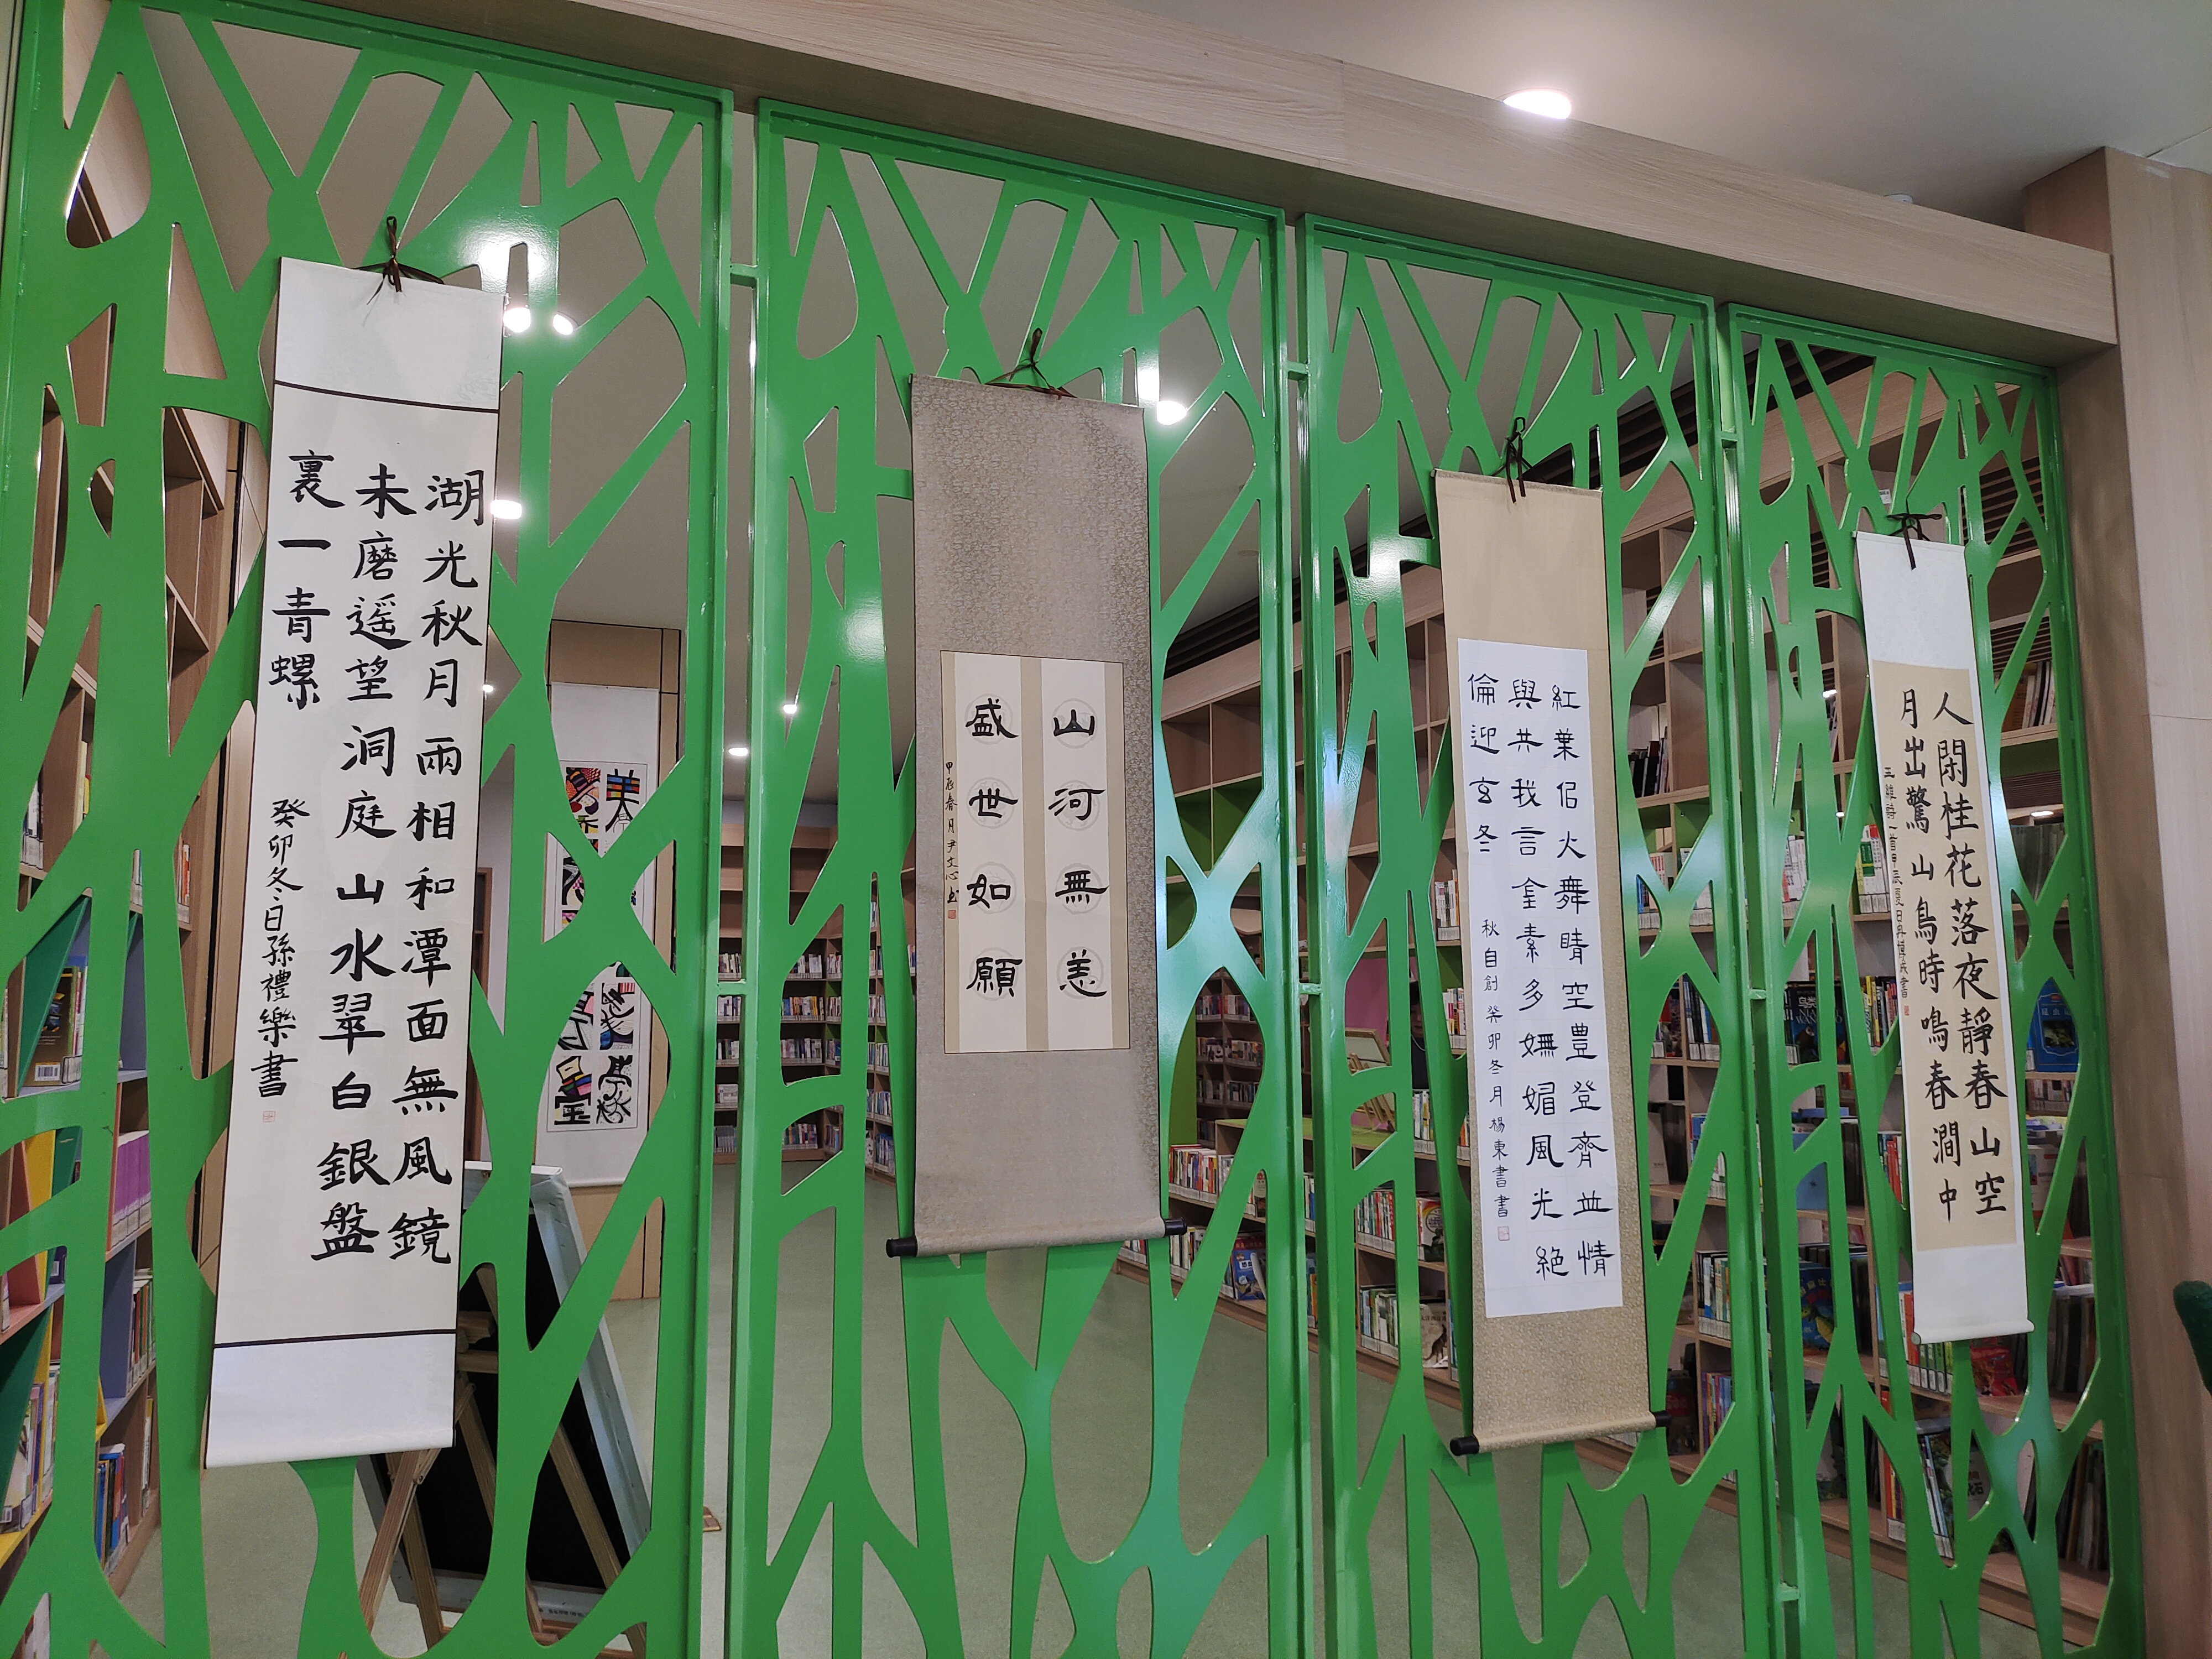 湖光秋月兩相和潭面無風鏡
未磨遥望洞庭山水翠白銀盤
裏一青螺
癸卯冬日孫禮樂書
山河無恙
盛世如願
甲辰春月尹文心書
紅葉侣火舞晴空豐登齊並情
與共我言金素多嫵媚風光絶
倫迎玄冬
秋自創癸卯冬月楊東書書
人閑桂花落夜靜春山空
月出驚山鳥時鳴春澗中